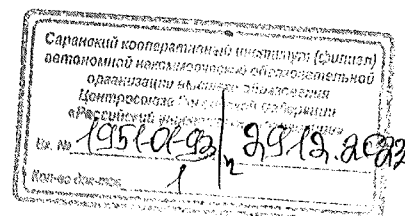 Саранский кооперативный институт (филиал)
автономной некоммерческой образовательной
организации высшего образования
Центросоюза Российской Федерации
«Российский университет
Вх. № 1951-01-93 29.12.2022
Кол-во док-тов 1